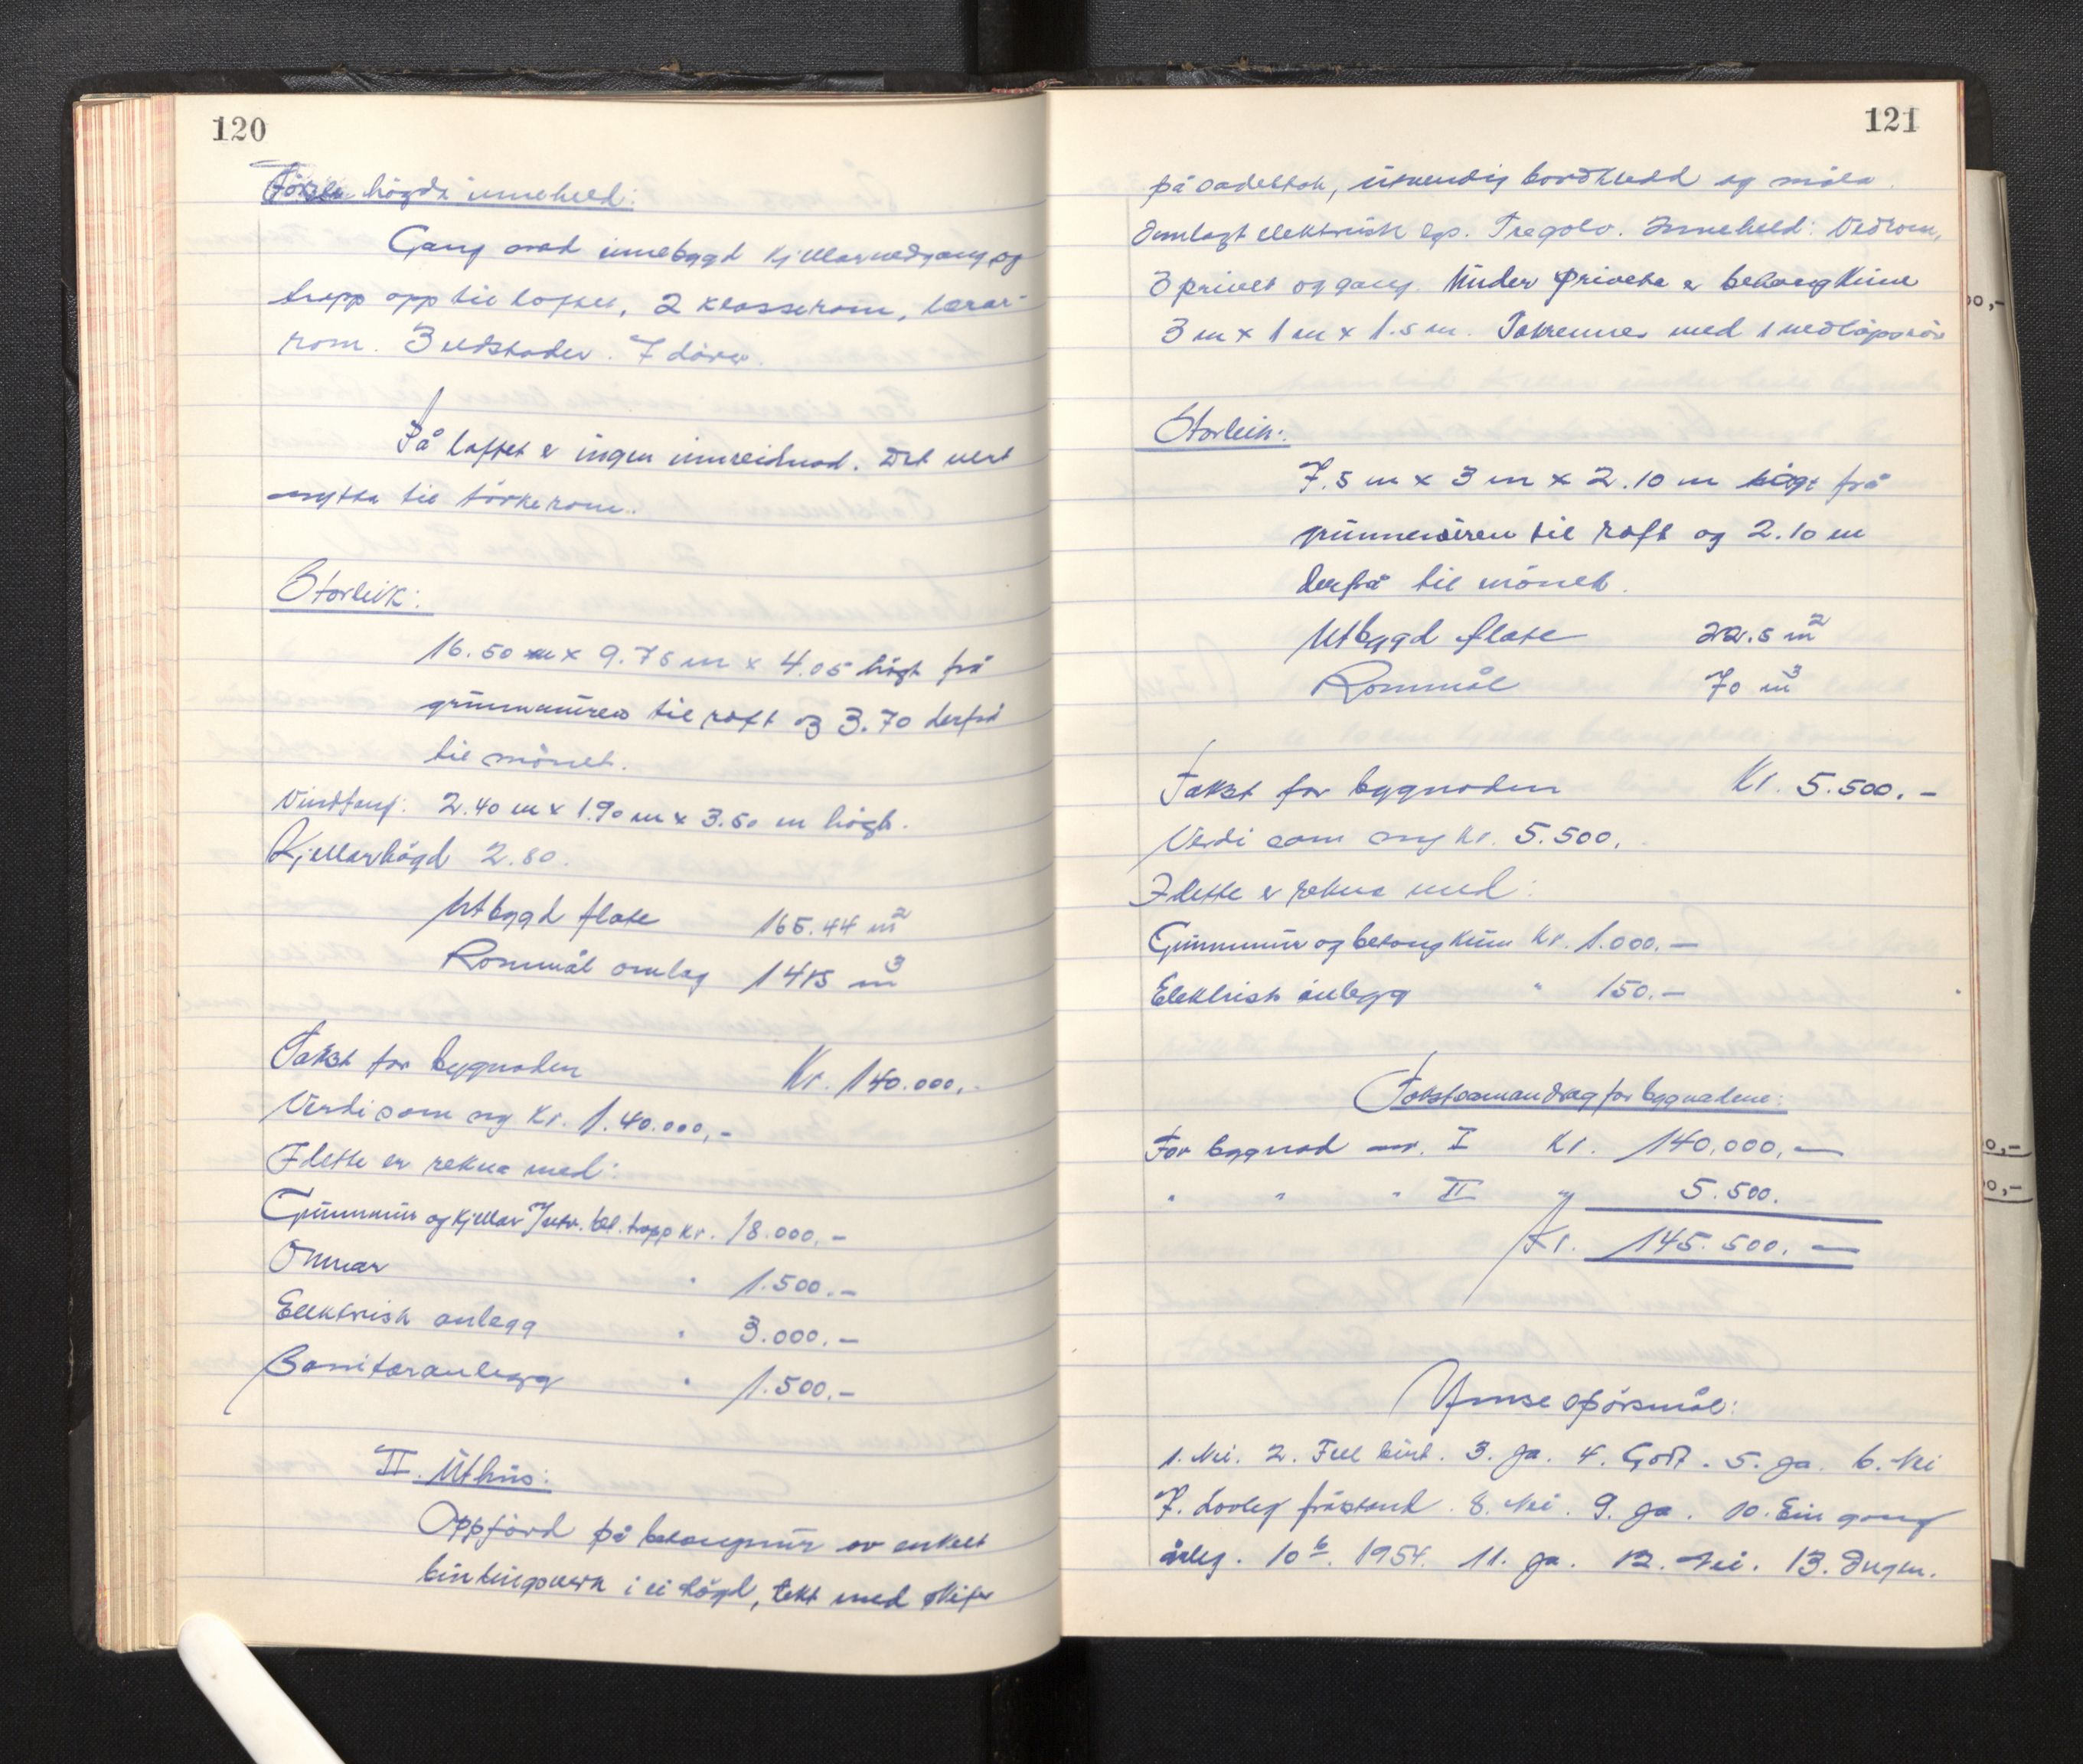 120
högda inneheld:
Gang med innebygd kjellarnedgang og
trapp opp til loftet, 2 klasserom, lærar-
rom. 3 eldstader. 7 dörer.
På loftet er ingen innreidnad. Det vert
nytta til törkerom.
Storleik:
16.50 m x 9.75 m x 4.05 högt frå
grunnmuren til raft og 3.70 derfrå
til mönet.
Vindfang: 2.40 m x 1.90 m x 3.50 m högt.
Kjellarhögd 2.80.
Utbygd flate 165.44 m²
Rommål omlag 1415 m³
Takst for bygnaden Kr. 140.000,-
Verdi som ny Kr. 1.40.000,-
I dette er rekna med:
Grunnmur og kjellar m/utv. bet. trapp Kr. 18.000.-
Omnar " 1.500.-
Elektrisk anlegg " 3.000.-
Sanitæranlegg " 1.500.-
II. Uthus:
Oppförd på betongmur av enkelt
bindingsverk i ei högd, tekt med skifer
121
på sadeltak, utvendig bordkledd og måla.
Innlagt elektrisk lys. Tregolv. Inneheld: Vedrom,
3 privet og gang. Under priveta er betongkum
3 m x 1 m x 1.5 m. Takrenner med 1 nedlöpsrör
Storleik:
7.5 m x 3 m x 2.10 m högt frå
grunnmuren til raft og 2.10 m
derfrå til mönet.
Utbygd flate 22.5 m²
Rommål 70 m³
Takst for bygnaden Kr. 5.500.-
Verdi som ny Kr. 5.500.
I dette er rekna med:
Grunnmur og betongkum Kr. 1.000.-
Elektrisk anlegg " 150.-
Takstsamandrag for bygnadene:
For bygnad nr. I Kr. 140.000.-
" " " II " 5.500.-
Kr. 145.500.-
Ymse spörsmål:
1. Nei. 2. Til bert. 3. Ja. 4. Godt. 5. Ja. 6. Nei
7. Lovleg fråstand. 8. Nei. 9. Ja. 10. Ein gang
årleg. 10 b. 1954. 11. Ja. 12. Nei. 13. Ingen.